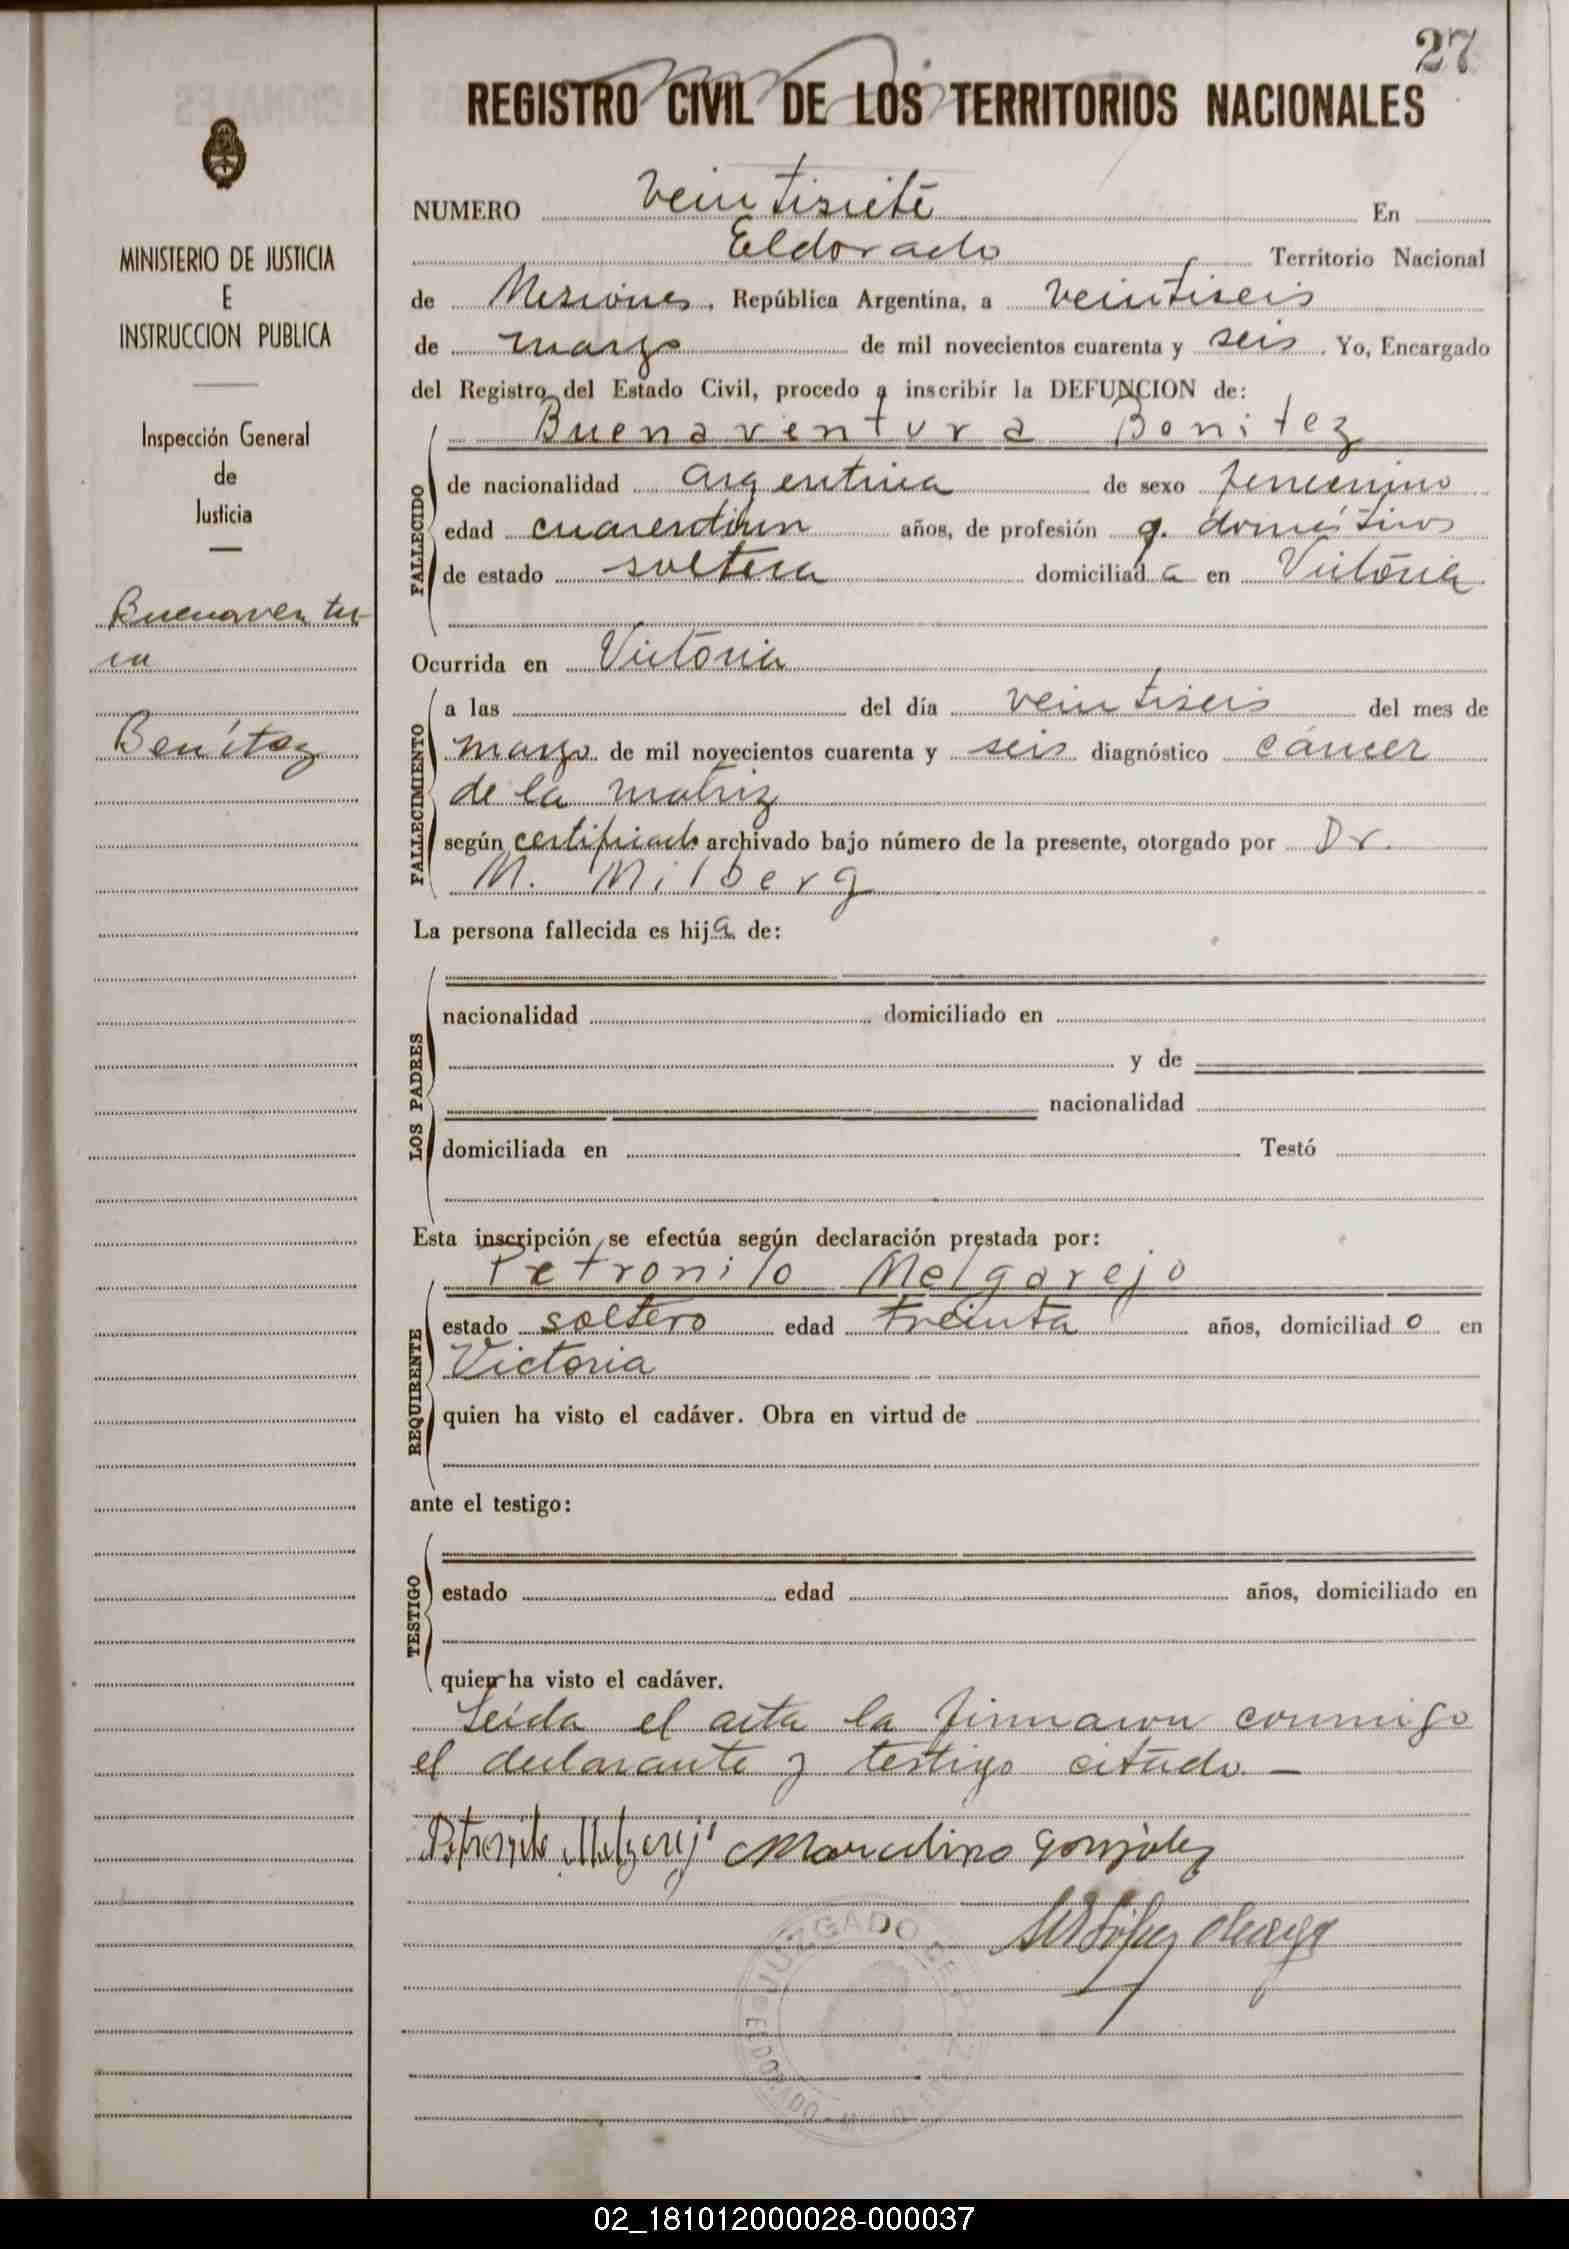 27
REGISTRO CIVIL DE LOS TERRITORIOS NACIONALES
MINISTERIO DE JUSTICIA
E
INSTRUCCION PUBLICA
Inspección General
de
Justicia
Buenaventu-
ra
Benítez
NUMERO veintisiete En
Eldorado Territorio Nacional
de Misiones, República Argentina, a veintiseis
de marzo de mil novecientos cuarenta y seis. Yo, Encargado
del Registro del Estado Civil, procedo a inscribir la DEFUNCION de:
Buenaventura Benitez
FALLECIDO
de nacionalidad argentina de sexo femenino
edad cuarentiun años, de profesión q. domésticos
de estado soltera domiciliada en Victoria
Ocurrida en Victoria
FALLECIMIENTO
a las del día veintiseis del mes de
marzo de mil novecientos cuarenta y seis diagnóstico cáncer
de la matriz
según certificado archivado bajo número de la presente, otorgado por Dr.
M. Milberg
La persona fallecida es hija de:
LOS PADRES
nacionalidad domiciliado en
y de
nacionalidad
domiciliada en Testó
Esta inscripción se efectúa según declaración prestada por:
Petronilo Melgarejo
REQUIRENTE
estado soltero edad treinta años, domiciliado en
Victoria
quien ha visto el cadáver. Obra en virtud de
ante el testigo:
TESTIGO
estado edad años, domiciliado en
quien ha visto el cadáver.
Leída el acta la firmaron conmigo
el declarante y testigo citado.—
Petronilo Melgarejo Marcelino González
JUZGADO DE PAZ
ELDORADO
02_181012000028-000037